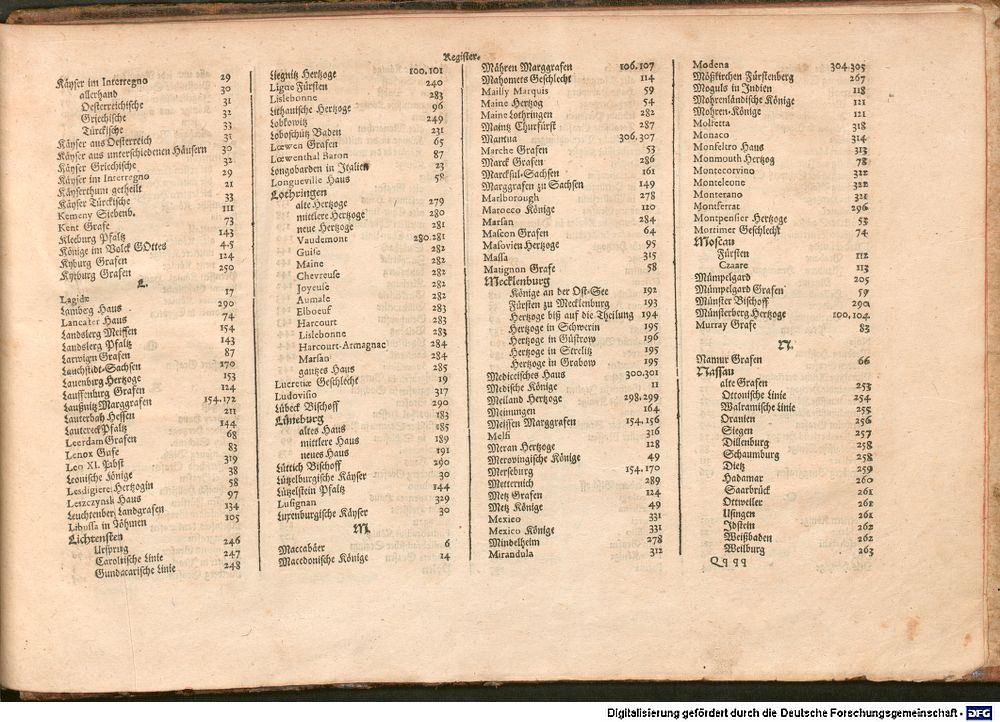 Register.
Käyser im Interregno 29
allerhand 30
Oesterreichische 31
Griechische 32
Türckische 33
Käyser aus Oesterreich 31
Käyser aus unterschiedenen Häusern 30
Käyser Griechische 32
Käyser im Interregno 29
Käyserthum getheilt 21
Käyser Türckische 33
Kemeny Siebenb. 111
Kent Grafe 73
Kleeburg Pfaltz 143
Könige im Volck GOttes 4.5
Kyburg Grafen 124
Kyrburg Grafen 250
L.
Lagidæ 17
Lamberg Haus 290
Lancaster Haus 74
Landsberg Meissen 154
Landsberg Pfaltz 143
Larwign Grafen 87
Lauchstädt-Sachsen 170
Lauenburg Hertzoge 153
Lauffenburg Grafen 124
Laußnitz Marggrafen 154.172
Lauterbach Hessen 211
Lautereck Pfaltz 144
Leerdam Grafen 68
Lenox Grafe 83
Leo XI. Pabst 319
Leonische Könige 38
Lesdigiere Hertzogin 58
Leszczynsk Haus 97
Leuchtenberg Landgrafen 134
Libussa in Böhmen 105
Lichtenstein
Ursprung 246
Carolische Linie 247
Gundacarische Linie 248
Liegnitz Hertzoge 100.101
Ligne Fürsten 240
Lislebonne 283
Lithauische Hertzoge 96
Lobkowitz 249
Loboschütz Baden 231
Lœwen Grafen 65
Lœwenthal Baron 87
Longobarden in Italien 23
Longueville Haus 58
Lothringen
alte Hertzoge 279
mittlere Hertzoge 280
neue Hertzoge 281
Vaudemont 280.281
Guise 282
Maine 282
Chevreuse 282
Joyeuse 282
Aumale 282
Elboeuf 283
Harcourt 283
Lislebonne 283
Harcourt-Armagnac 284
Marsan 284
gantzes Haus 285
Lucretiæ Geschlecht 19
Ludovisio 317
Lübeck Bischoff 290
Lüneburg 183
altes Haus 185
mittlere Haus 189
neues Haus 191
Lüttich Bischoff 290
Lützelburgische Käyser 30
Lützelstein Pfaltz 144
Lusignan 329
Luxenburgische Käyser 30
M.
Maccabäer 6
Macedonische Könige 14
Mähren Marggrafen 106.107
Mahomets Geschlecht 114
Mailly Marquis 59
Maine Hertzog 54
Maine Lothringen 282
Maintz Churfürst 287
Mantua 306.307
Marche Grafen 53
Marck Grafen 286
Marcksul-Sachsen 161
Marggrafen zu Sachsen 149
Marlborough 278
Marocco Könige 120
Marsan 284
Mascon Grafen 64
Masovien Hertzoge 95
Massa 315
Matignon Grafe 58
Mecklenburg
Könige an der Ost-See 192
Fürsten zu Mecklenburg 193
Hertzoge biß auf die Theilung 194
Hertzoge in Schwerin 195
Hertzoge in Güstrow 196
Hertzoge in Strelitz 195
Hertzoge in Grabow 195
Mediceisches Haus 300.301
Medische Könige 11
Meiland Hertzoge 298.299
Meinungen 164
Meissen Marggrafen 154.156
Melfi 316
Meran Hertzoge 128
Merovingische Könige 49
Merseburg 154.170
Metternich 289
Metz Grafen 124
Metz Könige 49
Mexico 331
Mexico Könige 331
Mindelheim 278
Mirandula 312
Modena 304.305
Möskirchen Fürstenberg 267
Moguls in Indien 118
Mohrenländische Könige 121
Mohren-Könige 121
Molfetta 318
Monaco 314
Monfeltro Haus 313
Monmouth Hertzog 78
Montecorvino 322
Monteleone 322
Monterano 321
Montferrat 296
Montpensier Hertzoge 53
Mortimer Geschlecht 74
Moscau
Fürsten 112
Czaare 113
Mümpelgard 205
Mümpelgard Grafen 59
Münster Bischoff 290
Münsterberg Hertzoge 100.104
Murray Grafe 83
N.
Namur Grafen 66
Nassau
alte Grafen 253
Ottonische Linie 254
Walramische Linie 255
Oranien 256
Siegen 257
Dillenburg 258
Schaumburg 258
Dietz 259
Hadamar 260
Saarbrück 261
Ottweiler 261
Usingen 261
Idstein 262
Weißbaden 262
Weilburg 263
Qqqq
Digitalisierung gefördert durch die Deutsche Forschungsgemeinschaft - DFG